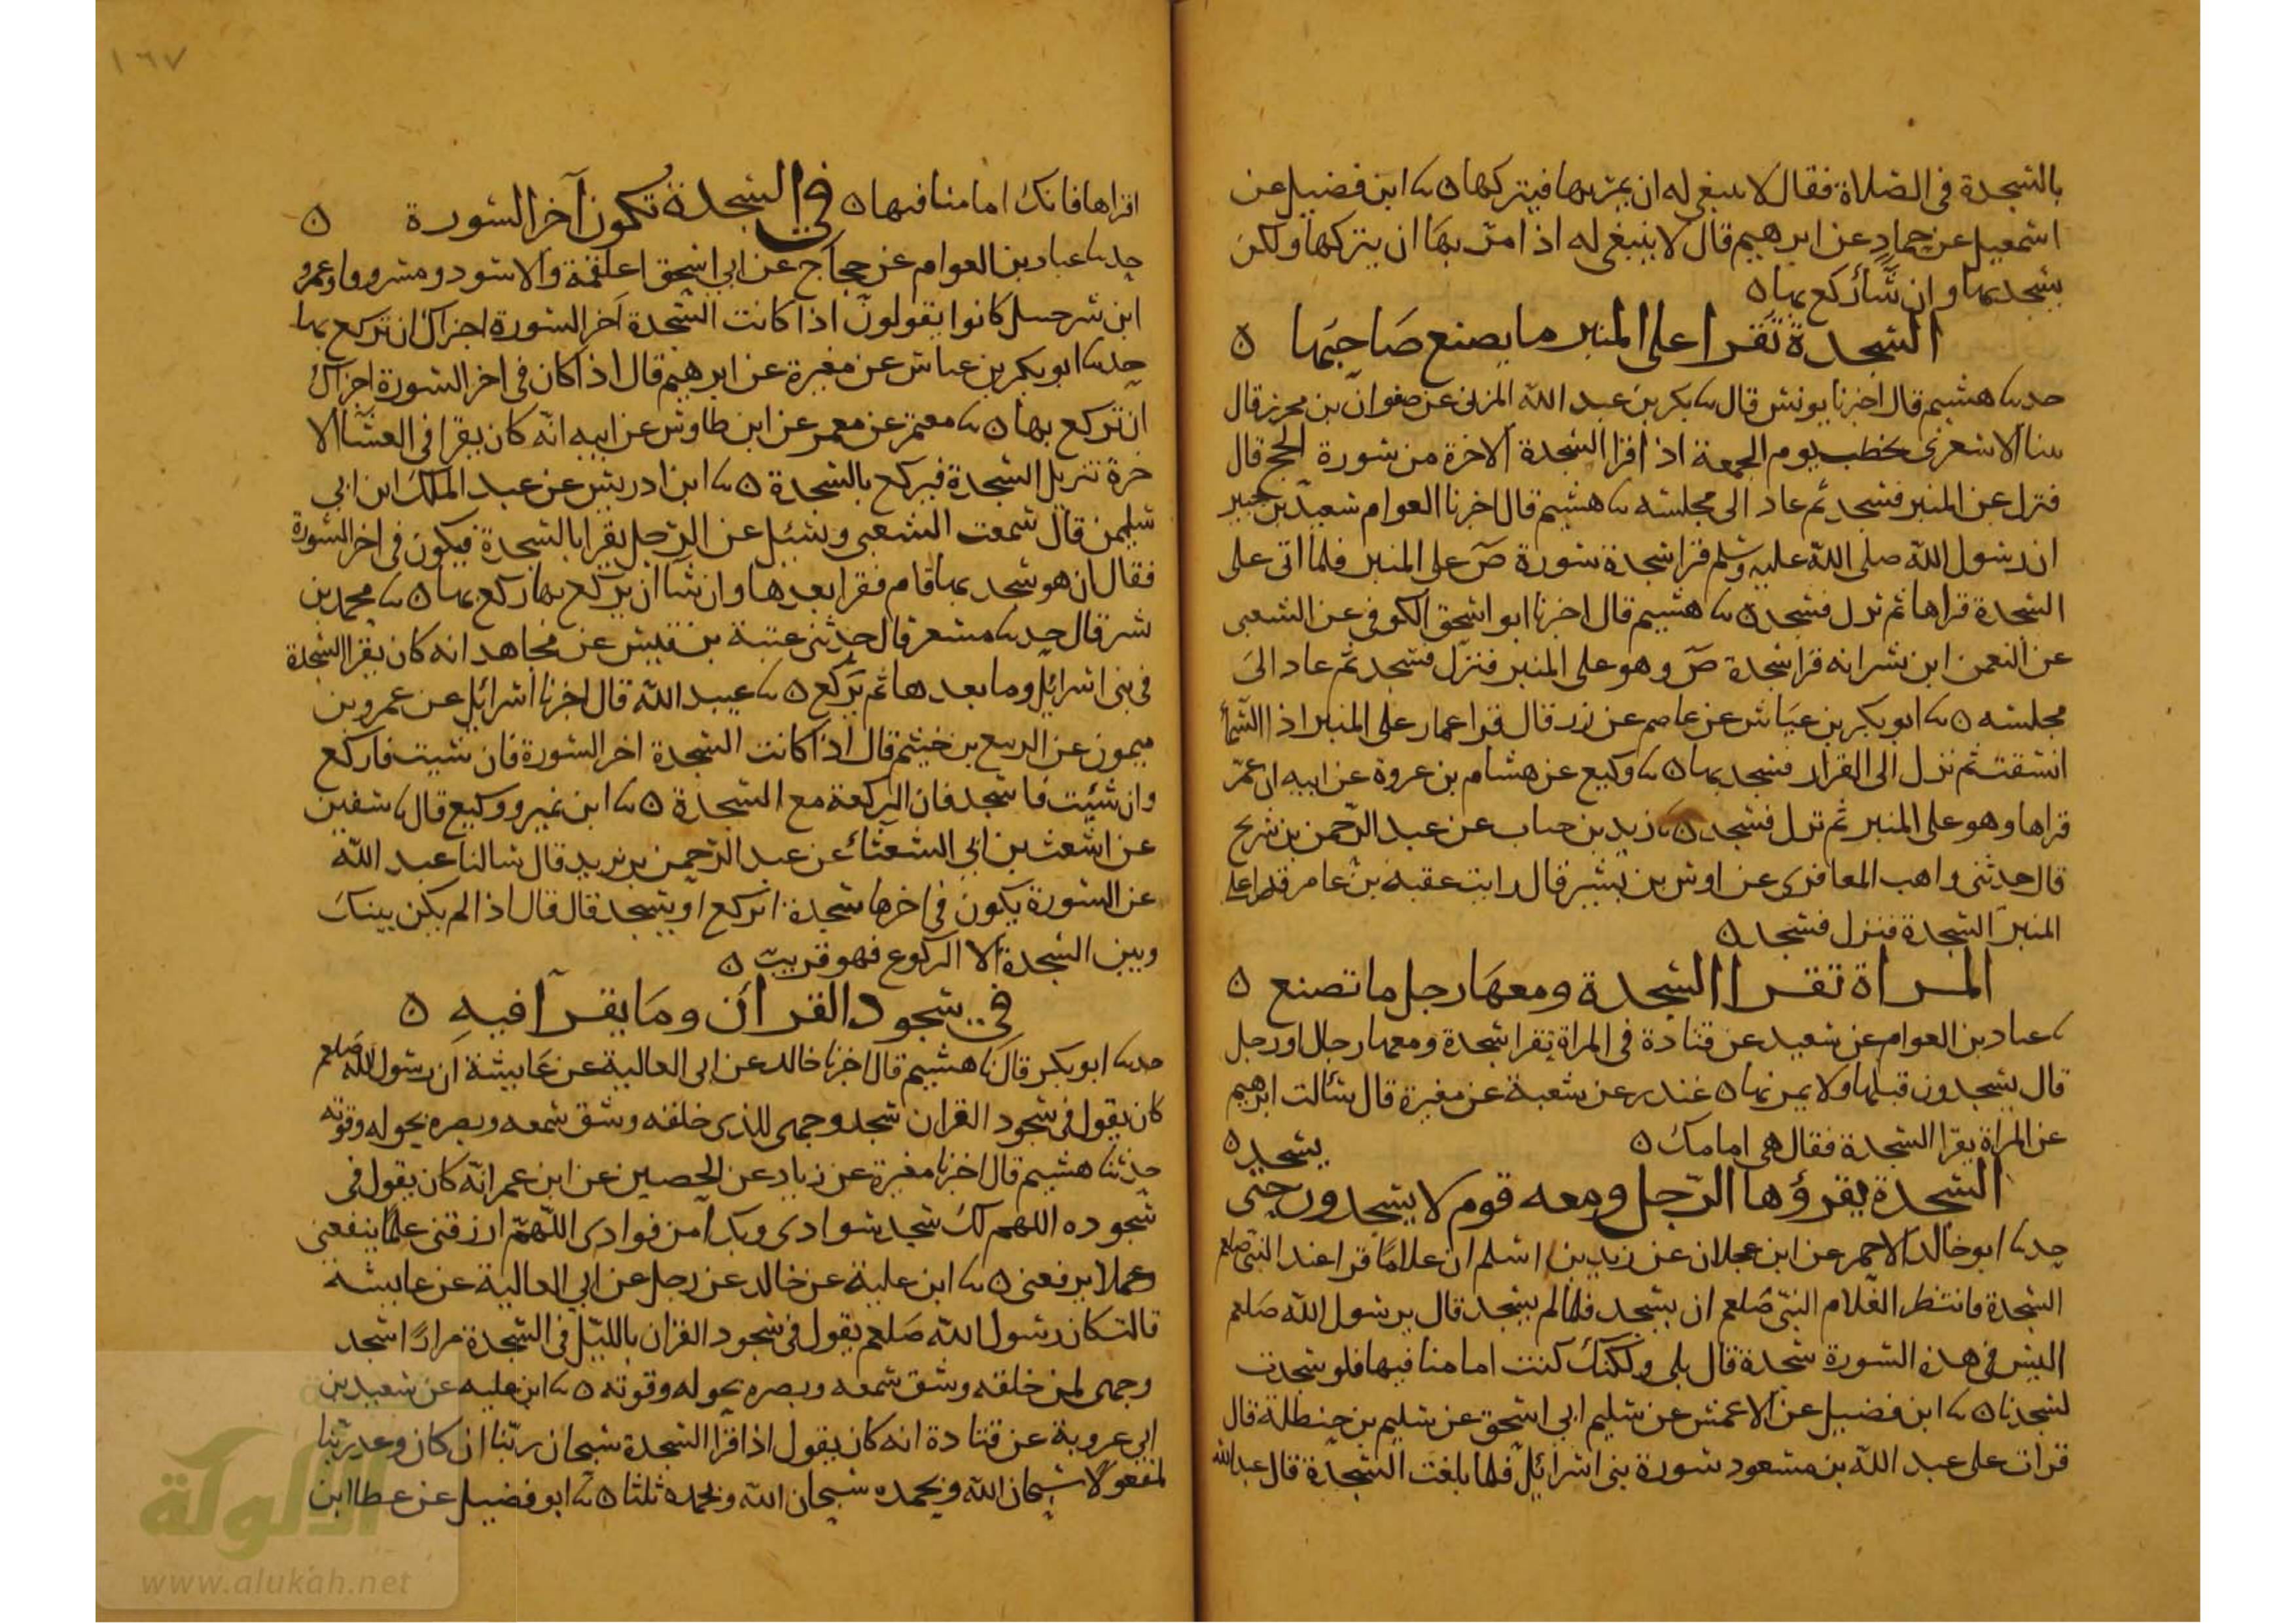 بالسجدة فى الصلاة فقال لا ينبغى له ان يمر بها فيتركها ٥ ثنا ابن فضيل عن
اسمعيل عن حماد عن ابرهيم قال لا ينبغى له اذا مر بها ان يتركها ولكن
يسجد بها وان شآ ركع بها ٥
السجدة تقرا على المنبر ما يصنع صاحبها ٥
حدثنا هشيم قال اخبرنا يونس قال ثنا بكر بن عبد الله المزنى عن صفوان بن محرز قال
بينا الاشعرى يخطب يوم الجمعة اذ قرا السجدة الاخرة من سورة الحج قال
فنزل عن المنبر فسجد ثم عاد الى مجلسه ثنا هشيم قال اخبرنا العوام سعيد بن جبير
ان رسول الله صلى الله عليه وسلم قرا سجدة سورة ص على المنبر فلما اتى على
السجدة قراها ثم نزل فسجد ٥ ثنا هشيم قال اخبرنا ابو اسحق الكوفى عن الشعبى
عن النعمن ابن بشر انه قرا سجدة ص وهو على المنبر فنزل فسجد ثم عاد الى
مجلسه ٥ ثنا ابو بكر بن عياش عن عاصم عن زر قال قرا عمار على المنبر اذا السما
انشقت ثم نزل الى القرار فسجد بها ٥ ثنا وكيع عن هشام بن عروة عن ابيه ان عمر
قراها وهو على المنبر ثم نزل فسجد ٥ ثنا زيد بن حباب عن عبد الرحمن بن شريح
قال حدثنى واهب المعافرى عن اوس بن بشير قال رايت عقبة بن عامر قرا على
المنبر السجدة فنزل فسجد ٥
المراة تقرا السجدة ومعها رجل ما تصنع ٥
ثنا عباد بن العوام عن سعيد عن قتادة فى المراة تقرا سجدة ومعها رجال او رجل
قال يسجدون قبلها ولا يمرنها ٥ غندر عن شعبة عن مغيرة قال سألت ابرهيم
عن المراة يقرا السجدة فقال هى امامك ٥ يسجد ٥
السجدة يقرؤها الرجل ومعه قوم لا يسجدون حتى
حدثنا ابو خالد الاحمر عن ابن عجلان عن زيد بن اسلم ان غلاما قرا عند النبى صلعم
السجدة فانتظر الغلام النبى صلعم ان يسجد فلما لم يسجد قال يرسول الله صلعم
اليس فى هذه السورة سجدة قال بلى ولكنك كنت امامنا فيها فلو سجدت
لسجدنا ٥ ثنا ابن فضيل عن الاعمش عن سليم ابى اسحق عن سليم بن حنظلة قال
قرات على عبد الله بن مسعود سورة بنى اسرائيل فلما بلغت السجدة قال عبد الله
١٦٧
اقراها فانك امامنا فيها ٥ فى السجدة تكون آخر السورة ٥
حدثنا عباد بن العوام عن حجاج عن ابى اسحق اعلقمة والاسود ومسروقا وعمرو
ابن شرحبيل كانوا يقولون اذا كانت السجدة آخر السورة اجزاك ان تركع بها
حدثنا ابو بكر بن عياش عن مغيرة عن ابرهيم قال اذا كان فى اخر السورة اجزاك
ان تركع بها ٥ ثنا معتمر عن معمر عن ابن طاوس عن ابيه انه كان يقرا فى العشآ الا
خرة تنزيل السجدة فيركع بالسجدة ٥ ثنا ابن ادريس عن عبد الملك ابن ابى
سليمن قال سمعت الشعبى وسئل عن الرجل يقرا بالسجدة فيكون فى اخر السورة
فقال ان هو سجد بها قام فقرا بعدها وان شآ ان يركع بها ركع بها ٥ ثنا محمد بن
بشر قال حدثنا مسعر قال حدثنى عتبة بن قيس عن مجاهد انه كان يقرا السجدة
فى بنى اسرائيل وما بعدها ثم يركع ٥ ثنا عبيد الله قال اخبرنا اسرائيل عن عمرو بن
ميمون عن الربيع بن خيثم قال اذا كانت السجدة اخر السورة فان شيت فاركع
وان شئت فاسجد فان الركعة مع السجدة ٥ ثنا ابن نمير ووكيع قال ثنا سفين
عن اشعث بن ابى الشعثاء عن عبد الرحمن بن يزيد قال سالنا عبد الله
عن السورة يكون فى اخرها سجدة ايركع او يسجد قال قال اذا لم يكن بينك
وبين السجدة الا الركوع فهو قريب ٥
فى سجود القرآن وما يقرآ فيه ٥
حدثنا ابو بكر قال ثنا هشيم قال اخبرنا خالد عن ابى العالية عن عايشة ان رسول الله صلعم
كان يقول فى سجود القران سجد وجهى للذى خلقه وشق سمعه وبصره بحوله وقوته
حدثنا هشيم قال اخبرنا مغيرة عن زياد عن الحصين عن ابن عمر انه كان يقول فى
سجوده اللهم لك سجد سوادى وبك آمن فوادى اللهم ارزقنى علما ينفعنى
وعملا يرفعنى ٥ ثنا ابن علية عن خالد عن رجل عن ابى العالية عن عايشة
قالت كان رسول الله صلعم يقول فى سجود القران بالليل فى السجدة مرارا سجد
وجهى لمن خلقه وشق سمعه وبصره بحوله وقوته ٥ ثنا ابن علية عن سعيد بن
ابى عروبة عن قتادة انه كان يقول اذا قرا السجدة سبحان ربنا ان كان وعد ربنا
لمفعولا سبحان الله وبحمده سبحان الله وبحمده ثلثا ٥ ثنا ابو فضيل عن عطا ابن
الألوكة
www.alukah.net